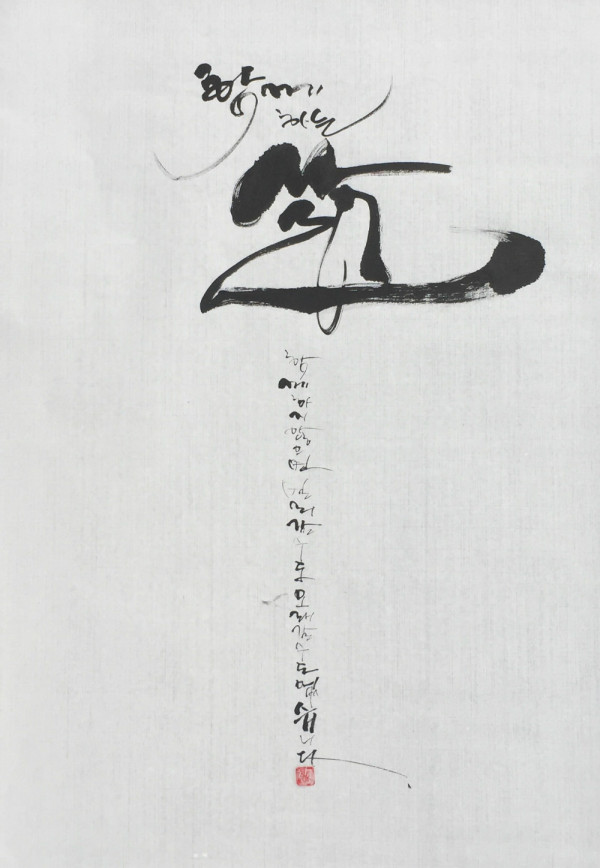 함께
하는
함께하지않으면멀리갈수도오래갈수도없습니다